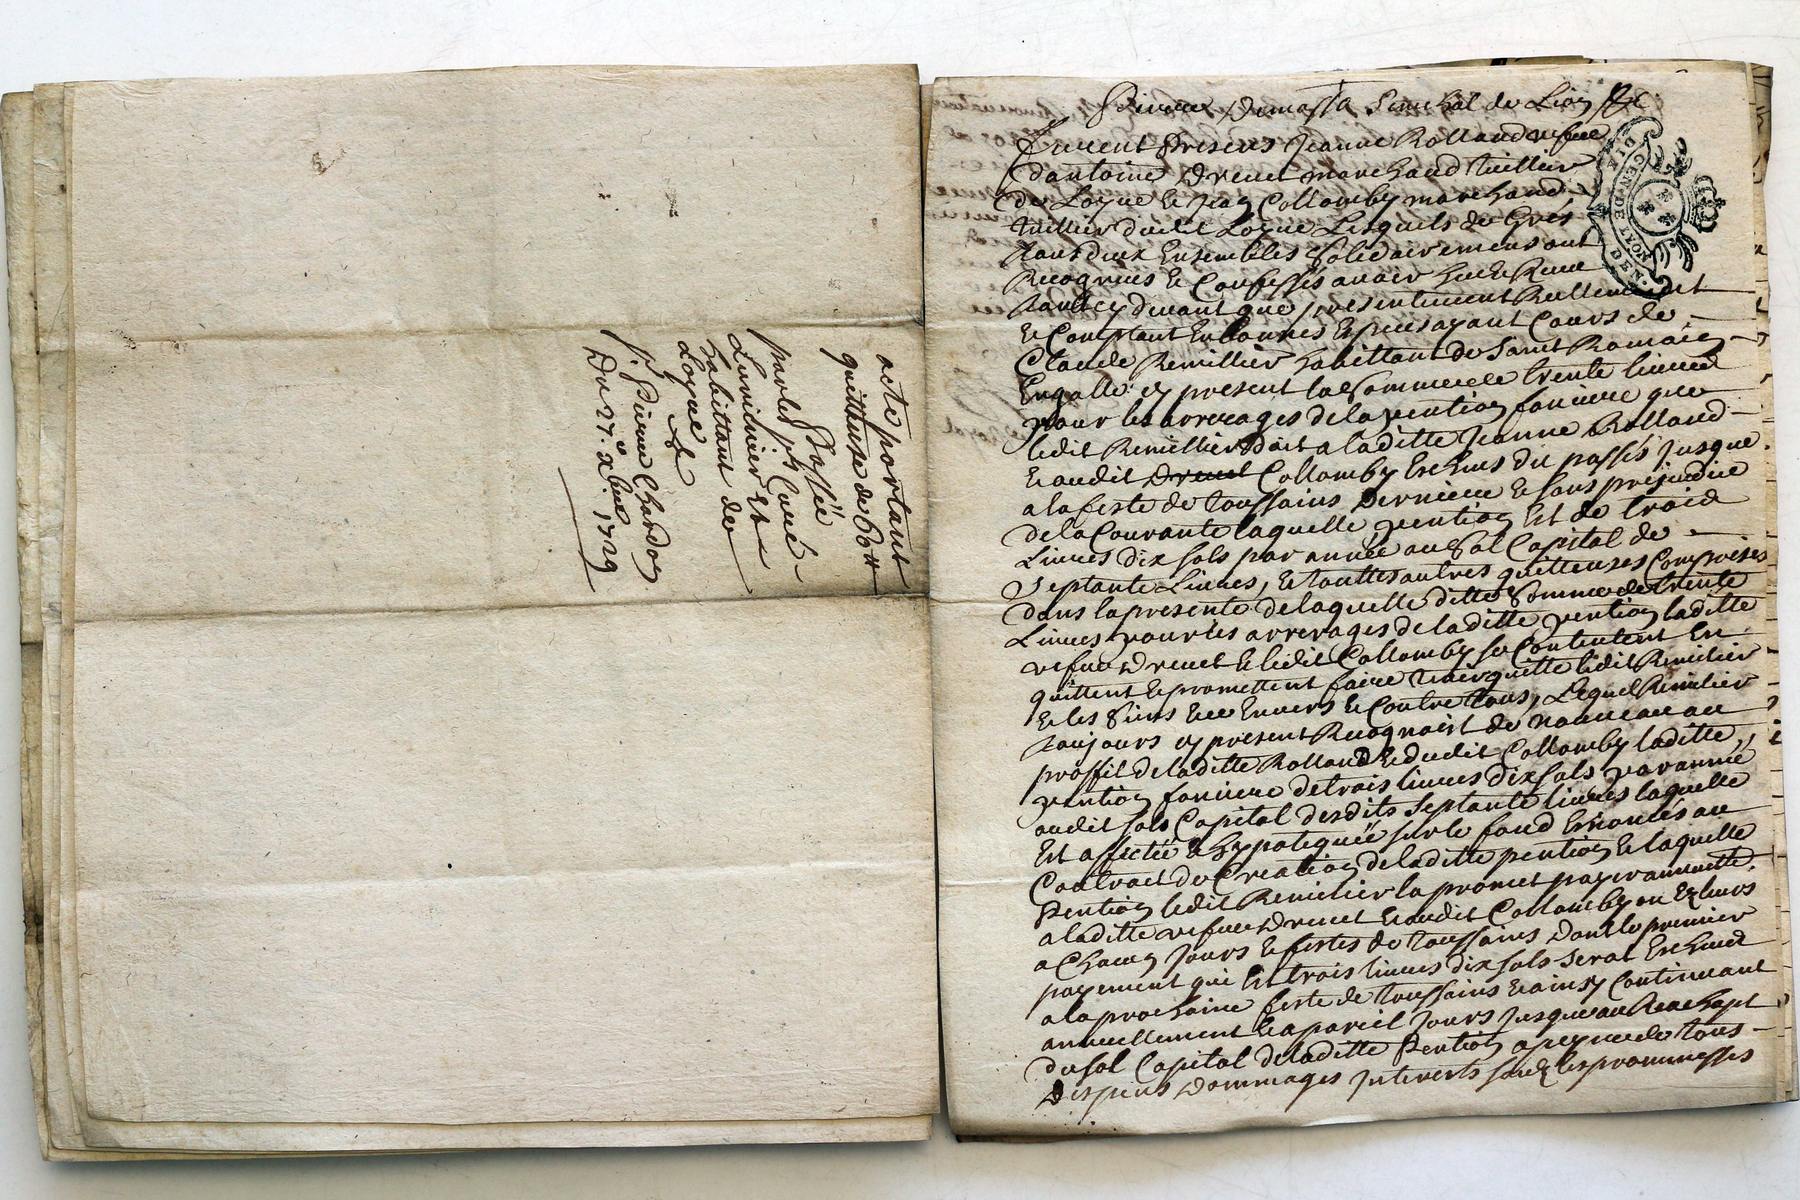 acte portant
quittense de 60 ₶
Passée
par les jos Curé
Lavidinier Et
habittant de
Loyne &
Sr. Pierre Chardon
Du 27e. xbre 1729
Pierre Demassa Senechal de Lion &c
Furent Presens Jeanne Rolland vefue
d'antoine Drevet marchand tuillier
de Loyne Et Jean Collomby marchand
tuillier dudit Loyne Lesquels de Grés
tous deux Ensembles Solidairement ont
Recognus Et Confessés avoir heu Et Receu
tant cy devant que presentement Reellement
Et Comptant En bonnes Especes ayant Cours de
Claude Remillier habittant de Saint Romain
Engalle cy present la Somme de trente livres
pour les arrerages de la pention fonciere que
ledit Remillier doit a laditte Jeanne Rolland
Et audit Collomby Escheus du passés jusque
a la feste de toussains Derniere Et sans prejudice
de la Courante laquelle pention Est de trois
Livres dix sols par année au Sol Capital de
Septante Livres, Et touttes autres quittenses Comprises
dans la presente de laquelle ditte Somme de trente
Livres pour les arrerages de laditte pention laditte
vefue Drevet Et ledit Collomby se Contentent En
quittent Et promettent faire tenir quitte ledit Remilier
Et les Siens Envers Et Contre tous, Lequel Remilier
toujours cy present Recognoist de nouveau au
proffit de laditte Rolland Et dudit Collomby laditte
pention fonciere de trois livres dix sols par année
audit sols Capital desdits Septante livres laquelle
Est affectée Et hypotequée sur le fond Enoncés au
Contract de Creation de laditte pention Et laquelle
Pention ledit Remilier la promet payer annuelle.
a laditte vefue Drevet Et audit Collomby ou Es leurs
a Chacun jours Et festes de toussains Dont le premier
payement qui Est trois livres dix sols serat Escheus
a la prochaine feste de toussains Et ainsy Continuant
annuellement Et a pareil jours jusque au Reachapt
du sol Capital de laditte Pention a peyne de tous
Despens Dommages Interests sous les prommesses
GEN. DE LION
DIX DEN.